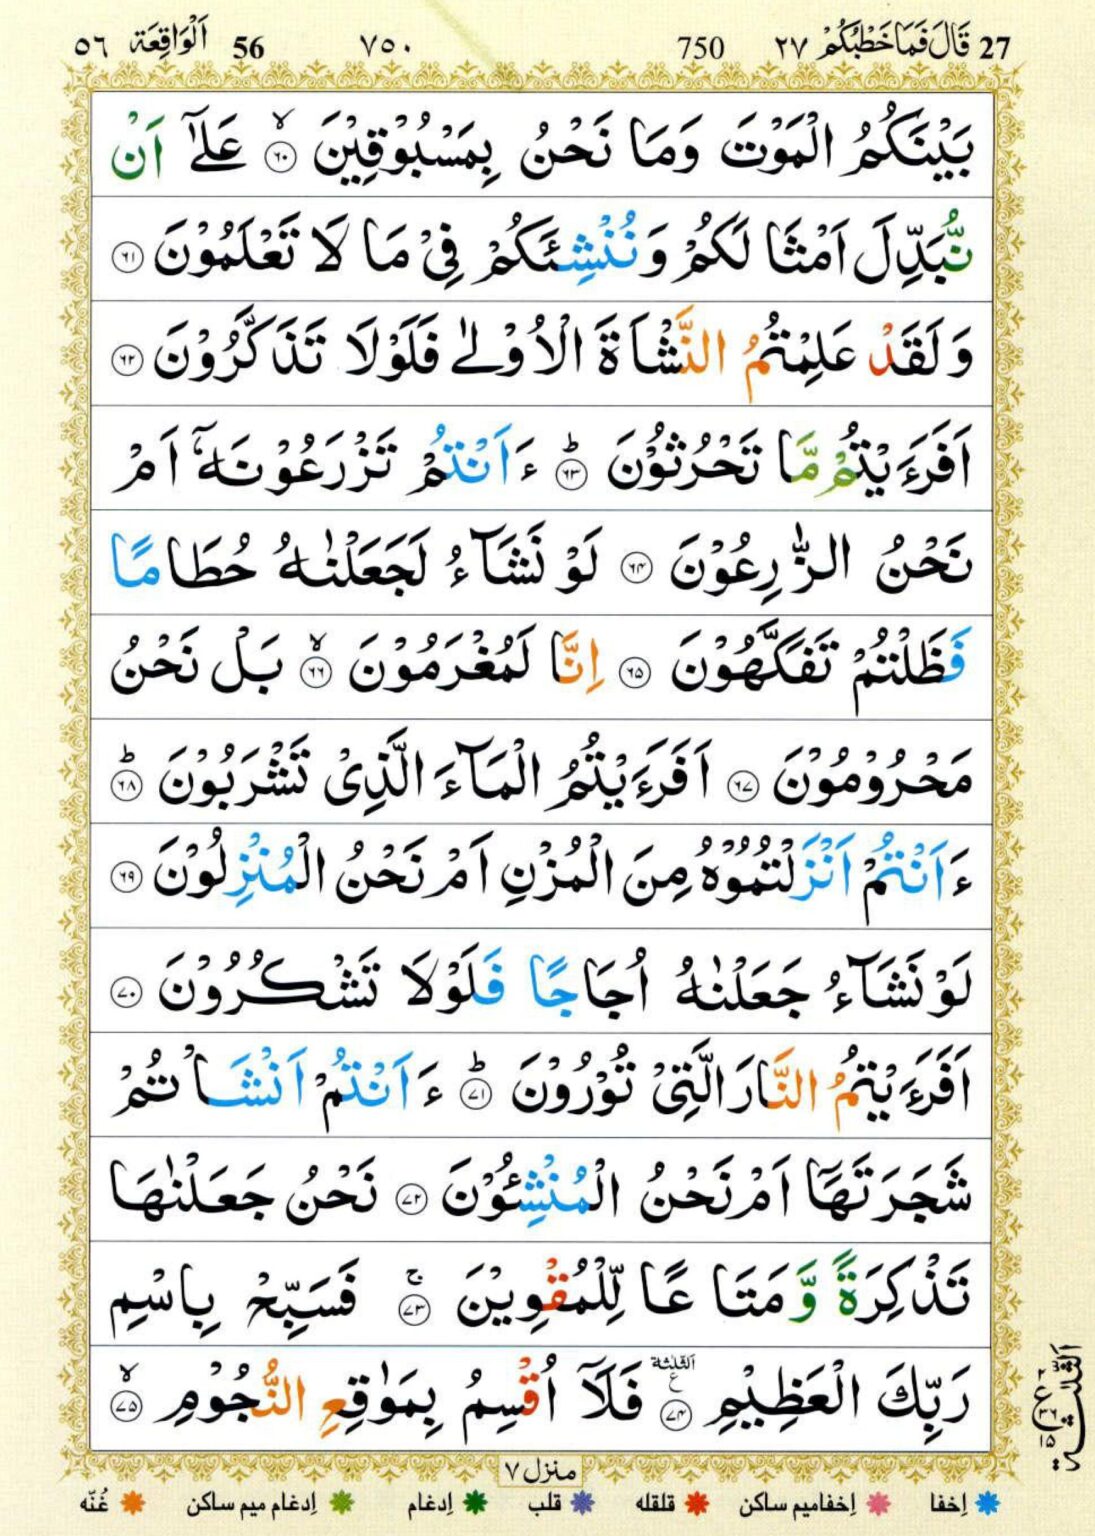 27 قَالَ فَمَا خَطْبُكُمْ ٢٧ 750 ٧٥٠ 56 اَلْوَاقِعَة ٥٦
بَيْنَكُمُ الْمَوْتَ وَمَا نَحْنُ بِمَسْبُوْقِيْنَ ۙ‏﴿۶۰﴾ عَلٰٓى اَنْ
نُّبَدِّلَ اَمْثَا لَكُمْ وَنُنْشِئَكُمْ فِىْ مَا لَا تَعْلَمُوْنَ ﴿۶۱﴾
وَلَقَدْ عَلِمْتُمُ النَّشْاَةَ الْاُوْلٰى فَلَوْلَا تَذَكَّرُوْنَ ﴿۶۲﴾
اَفَرَءَيْتُمْ مَّا تَحْرُثُوْنَ ؕ‏﴿۶۳﴾ ءَاَنْتُمْ تَزْرَعُوْنَهٗۤ اَمْ
نَحْنُ الزّٰرِعُوْنَ ﴿۶۴﴾ لَوْ نَشَآءُ لَجَعَلْنٰهُ حُطَامًا
فَظَلْتُمْ تَفَكَّهُوْنَ ﴿۶۵﴾ اِنَّا لَمُغْرَمُوْنَ ۙ‏﴿۶۶﴾ بَلْ نَحْنُ
مَحْرُوْمُوْنَ ﴿۶۷﴾ اَفَرَءَيْتُمُ الْمَآءَ الَّذِىْ تَشْرَبُوْنَ ؕ‏﴿۶۸﴾
ءَاَنْتُمْ اَنْزَلْتُمُوْهُ مِنَ الْمُزْنِ اَمْ نَحْنُ الْمُنْزِلُوْنَ ﴿۶۹﴾
لَوْ نَشَآءُ جَعَلْنٰهُ اُجَاجًا فَلَوْلَا تَشْكُرُوْنَ ﴿۷۰﴾
اَفَرَءَيْتُمُ النَّارَ الَّتِىْ تُوْرُوْنَ ؕ‏﴿۷۱﴾ ءَاَنْتُمْ اَنْشَاْتُمْ
شَجَرَتَهَاۤ اَمْ نَحْنُ الْمُنْشِئُوْنَ ﴿۷۲﴾ نَحْنُ جَعَلْنٰهَا
تَذْكِرَةً وَّمَتَاعًا لِّلْمُقْوِيْنَ ۚ‏﴿۷۳﴾ فَسَبِّحْ بِاسْمِ
رَبِّكَ الْعَظِيْمِ ﴿۷۴﴾ الثلٰثة ع فَلَاۤ اُقْسِمُ بِمَوٰقِعِ النُّجُوْمِ ۙ‏﴿۷۵﴾
اَلثَّلٰثَة ع ٣٦ ١٥
منزل ٧
اِخفا اِخفامیم ساکن قلقله قلب اِدغام اِدغام میم ساکن غُنّه